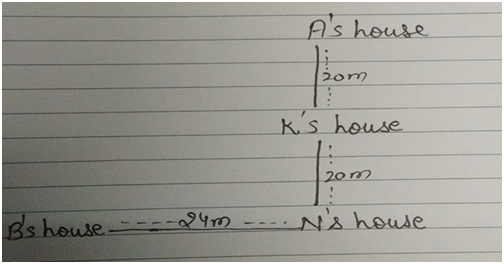 A's house
20m
K's house
20m
B's house 24m N's house